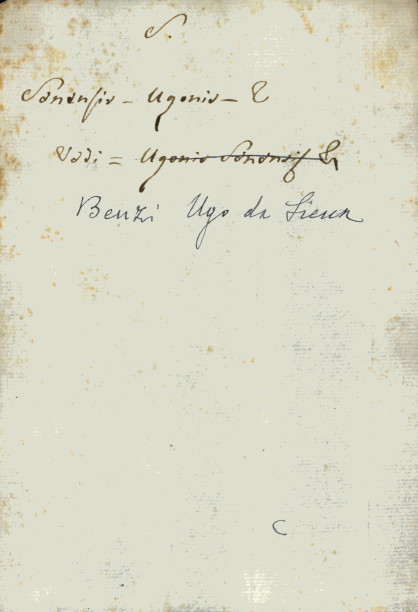 S.
Senensis - Ugonis -
Vedi = Ugonis Senensis
Benzi Ugo da Siena
C